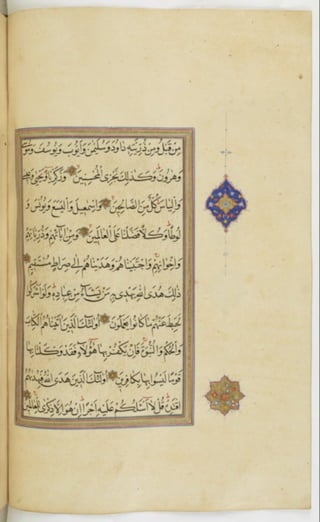 مِنْ قَبْلُ وَمِنْ ذُرِّيَّتِهِ دَاوُدَ وَسُلَيْمٰنَ وَأَيُّوبَ وَيُوسُفَ وَمُوسَى
وَهٰرُونَ وَكَذَلِكَ نَجْزِي الْمُحْسِنِينَ وَزَكَرِيَّا وَيَحْيَى وَعِيسَى
وَإِلْيَاسَ كُلٌّ مِنَ الصَّالِحِينَ وَإِسْمٰعِيلَ وَالْيَسَعَ وَيُونُسَ وَ
لُوطًا وَكُلًّا فَضَّلْنَا عَلَى الْعَالَمِينَ وَمِنْ آبَائِهِمْ وَذُرِّيَّاتِهِمْ
وَإِخْوَانِهِمْ وَاجْتَبَيْنَاهُمْ وَهَدَيْنَاهُمْ إِلَى صِرَاطٍ مُسْتَقِيمٍ
ذَلِكَ هُدَى اللَّهِ يَهْدِي بِهِ مَنْ يَشَاءُ مِنْ عِبَادِهِ وَلَوْ أَشْرَكُوا
لَحَبِطَ عَنْهُمْ مَا كَانُوا يَعْمَلُونَ أُولَئِكَ الَّذِينَ آتَيْنَاهُمُ الْكِتَابَ
وَالْحُكْمَ وَالنُّبُوَّةَ فَإِنْ يَكْفُرْ بِهَا هَؤُلَاءِ فَقَدْ وَكَّلْنَا بِهَا
قَوْمًا لَيْسُوا بِهَا بِكَافِرِينَ أُولَئِكَ الَّذِينَ هَدَى اللَّهُ فَبِهُدَاهُمُ
اقْتَدِهْ قُلْ لَا أَسْأَلُكُمْ عَلَيْهِ أَجْرًا إِنْ هُوَ إِلَّا ذِكْرَى لِلْعَالَمِينَ